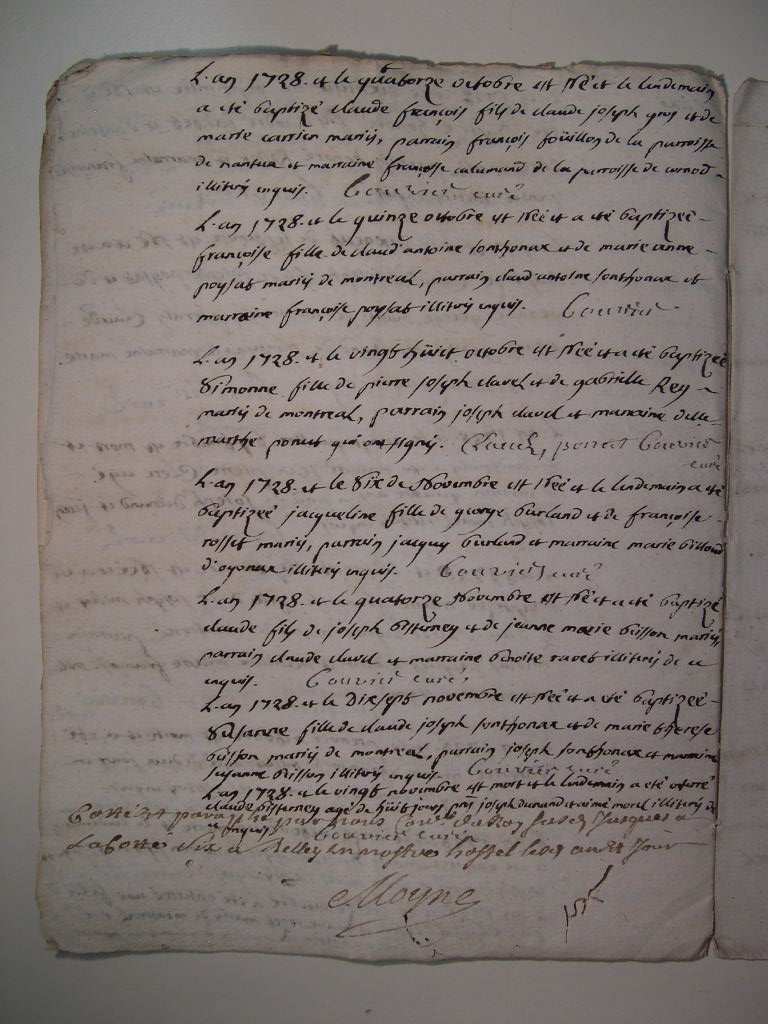 L'an 1728. et le quatorze octobre est née et le lendemain
a eté baptizé claude françois fils de claude joseph gros et de
marie carrier mariés, parrain françois foüillon de la parroisse
de nantua et marraine françoise calamand de la parroisse de
illiterés enquis. Bouvier curé
L'an 1728. et le quinze octobre est née et a eté baptizée
françoise fille de claud'antoine sonthonax et de marie anne
poysat mariés de montreal, parrain claud'antoine sonthonax et
marraine françoise poysat illiterés enquis. Bouvier
L'an 1728. et le vingt hüict octobre est née et a eté baptizée
Simonne fille de pierre joseph clavel et de gabrielle Rey
mariés de montreal, parrain joseph clavel et marraine delle
marthe poncet qui ont signés. Clavel, poncet Bouvier
curé
L'an 1728. et le Six de Novembre est née et le lendemain a eté
baptizée jacqueline fille de george burland et de françoise
rosset mariés, parrain jacques burland et marraine marie billoud
d'oyonax illiterés enquis. Bouvier curé
L'an 1728. et le quatorze Novembre est née et a eté baptizé
claude fils de joseph bisterney et de jeanne marie buisson mariés
parrain claude clavel et marraine benoite ravet illiterés de ce
enquis. Bouvier curé
L'an 1728. et le Dixsept novembre est née et a eté baptizée
Susanne fille de claude joseph sonthonax et de marie therese
buisson mariés de montreal, parrain joseph sonthonax et marraine
susanne buisson illiterés enquis. Bouvier curé
L'an 1728. et le vingt novembre est mort et le lendemain a eté enterré
claude bisterney agé de hüit jours pnt joseph durand et aimé morel illiterés de
ce enquis Bouvier curé
Cotté et paraphé par nous du Roy
La Cotte dix a Belley en nostre hostel jour
Moyne